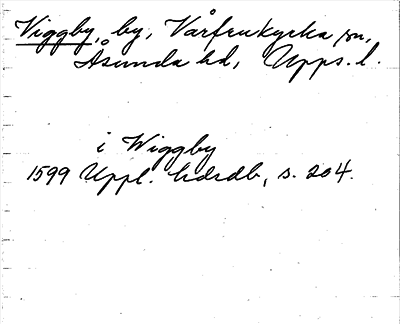 Viggby, by, Vårfrukyrka sn,
Åsunda hd, Upps. l.
i Wiggby
1599 Uppl. hdrdb, s. 204.